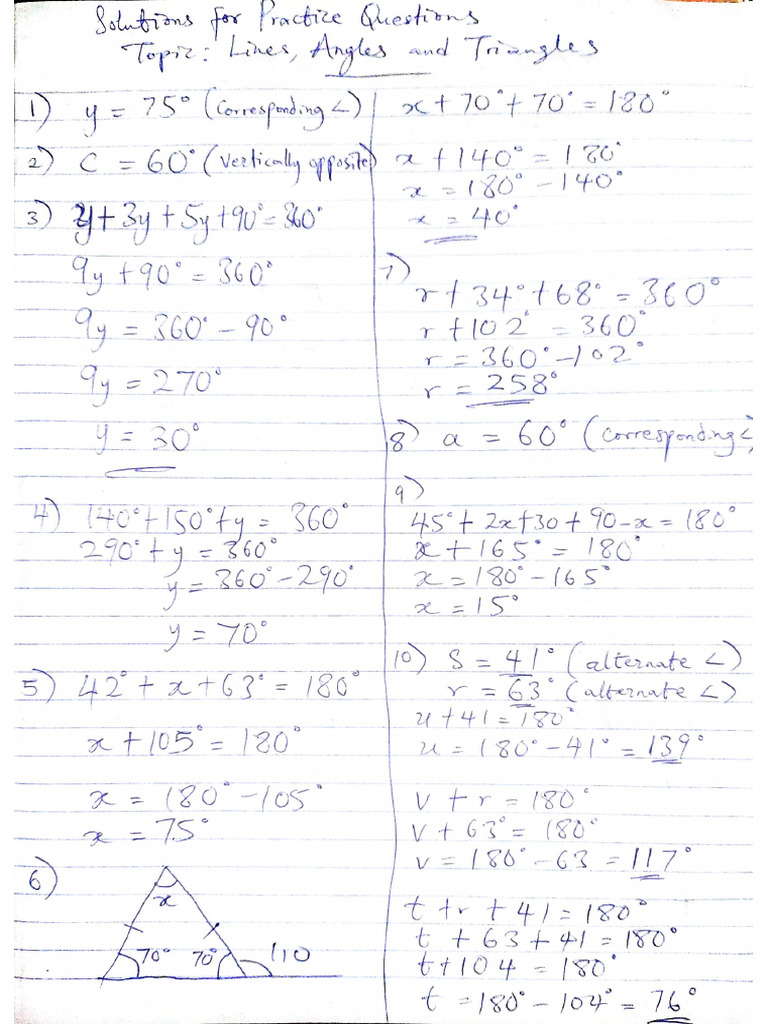 Solutions for Practice Questions
Topic: Lines, Angles and Triangles
1) y = 75° (Corresponding <)
2) C = 60° (Vertically opposite)
3) y + 3y + 5y + 90° = 360°
9y + 90° = 360°
9y = 360° - 90°
9y = 270°
y = 30°
4) 140° + 150° + y = 360°
290° + y = 360°
y = 360° - 290°
y = 70°
5) 42° + x + 63° = 180°
x + 105° = 180°
x = 180° - 105°
x = 75°
6)
x
70° 70° 110
x + 70° + 70° = 180°
x + 140° = 180°
x = 180° - 140°
x = 40°
7)
r + 34° + 68° = 360°
r + 102° = 360°
r = 360° - 102°
r = 258°
8) a = 60° (corresponding <)
9)
45° + 2x + 30 + 90 - x = 180°
x + 165° = 180°
x = 180° - 165°
x = 15°
10) S = 41° (alternate <)
r = 63° (alternate <)
u + 41 = 180°
u = 180° - 41° = 139°
v + r = 180°
v + 63° = 180°
v = 180° - 63 = 117°
t + r + 41 = 180°
t + 63 + 41 = 180°
t + 104 = 180°
t = 180° - 104° = 76°